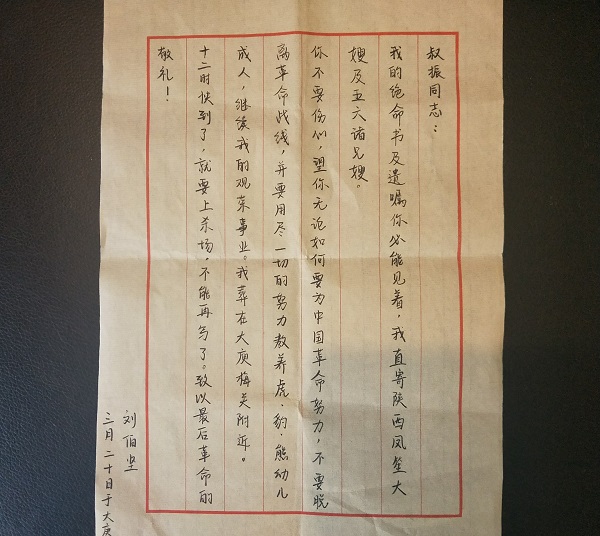 叔振同志：
我的绝命书及遗嘱你必能见着，我直寄陕西凤笙大
嫂及五六诸兄嫂。
你不要伤心，望你无论如何要为中国革命努力，不要脱
离革命战线，并要用尽一切的努力教养虎·豹·熊幼儿
成人，继续我的观荣事业。我葬在大庾梅关附近。
十二时快到了，就要上杀场，不能再写了。致以最后革命的
敬礼！
刘伯坚
三月二十日于大庾